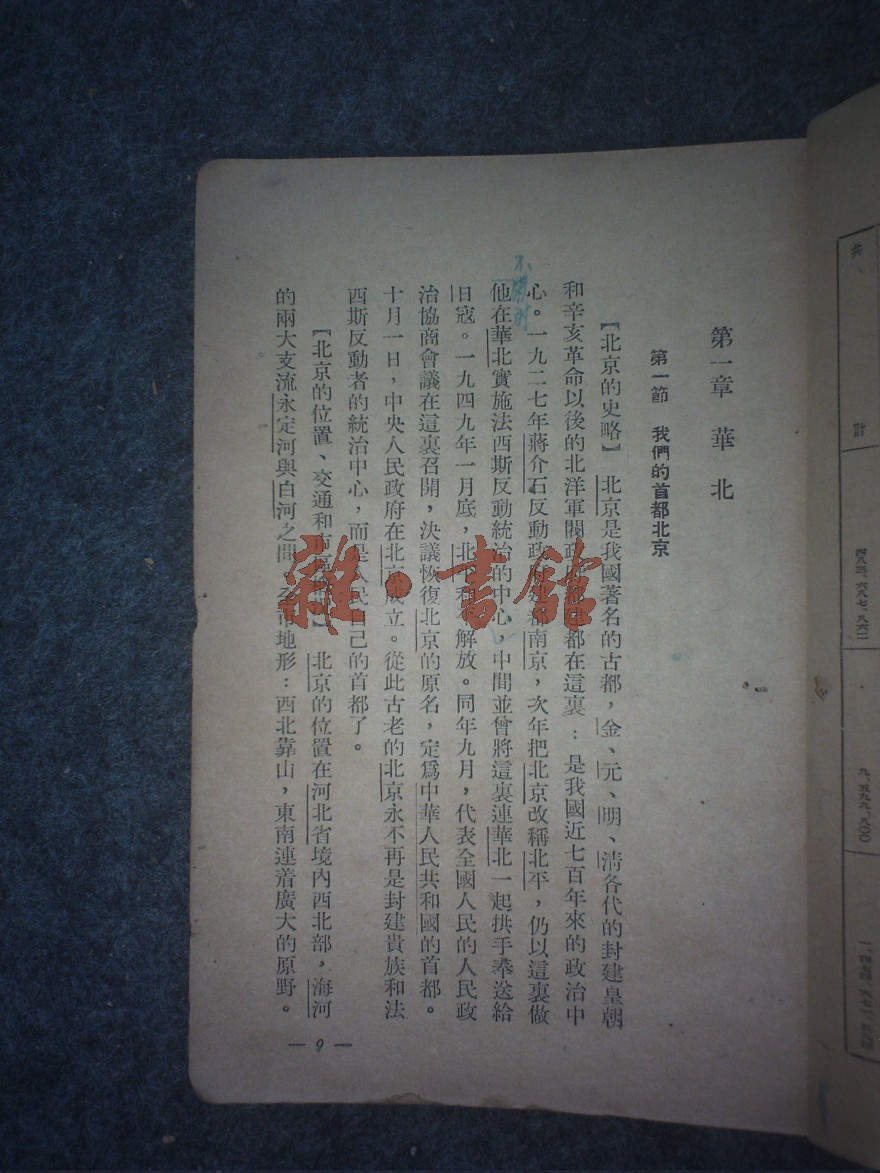 第一章 華北
第一節 我們的首都北京
【北京的史略】 北京是我國著名的古都，金、元、明、清各代的封建皇朝
和辛亥革命以後的北洋軍閥政府都建都在這裏：是我國近七百年來的政治中
心。一九二七年蔣介石反動政府建都南京，次年把北京改稱北平，仍以這裏做
他在華北實施法西斯反動統治的中心，中間並曾將這裏連華北一起拱手奉送給
日寇。一九四九年一月底，北平和平解放。同年九月，代表全國人民的人民政
治協商會議在這裏召開，決議恢復北京的原名，定爲中華人民共和國的首都。
十月一日，中央人民政府在北京成立。從此古老的北京永不再是封建貴族和法
西斯反動者的統治中心，而是人民自己的首都了。
【北京的位置、交通和市區】 北京的位置在河北省境內西北部，海河
的兩大支流永定河與白河之間。全市地形：西北靠山，東南連着廣大的原野。
— 9 —
雜·書館
共 計
四八三、六八七、八六二
九、五九九、八〇〇